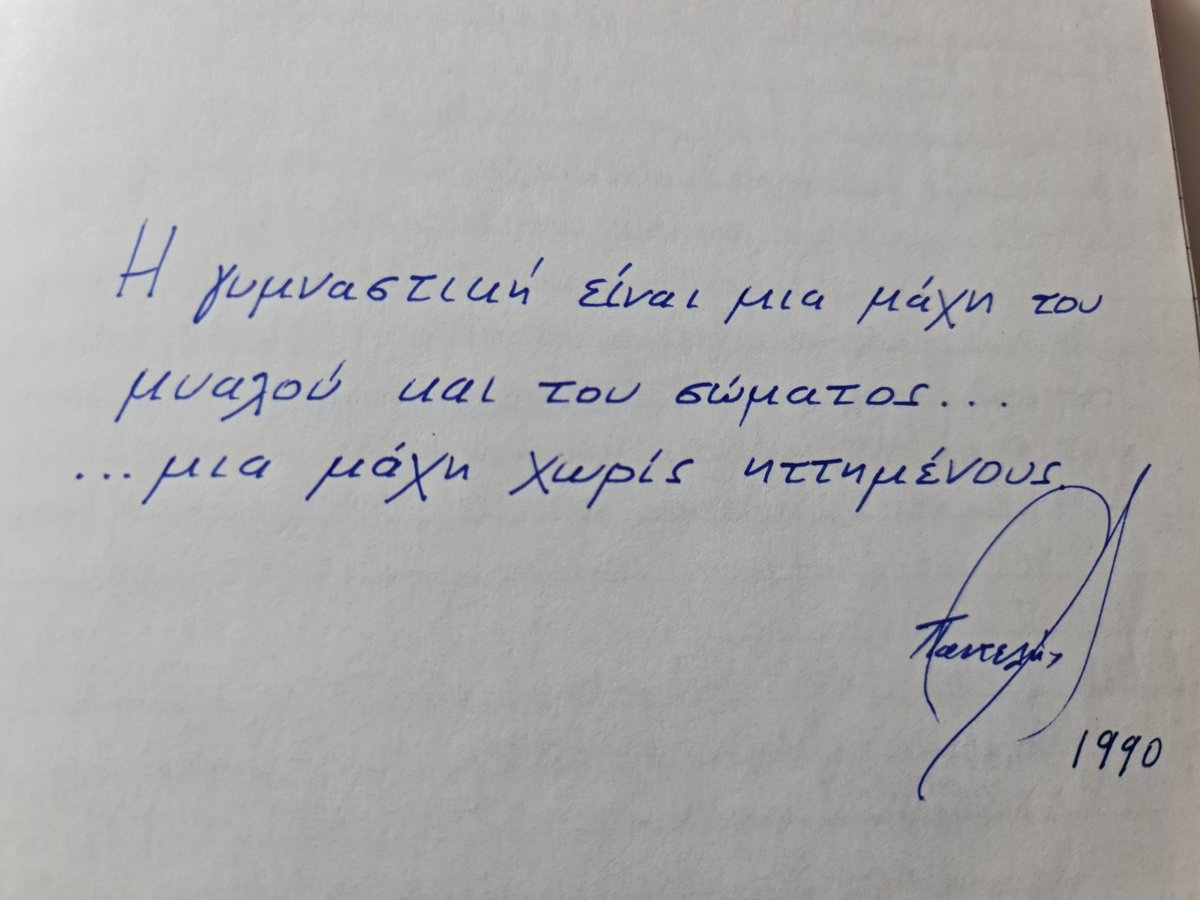 Η γυμναστική είναι μια μάχη του
μυαλού και του σώματος...
...μια μάχη χωρίς ηττημένους.
Παντελής
1990